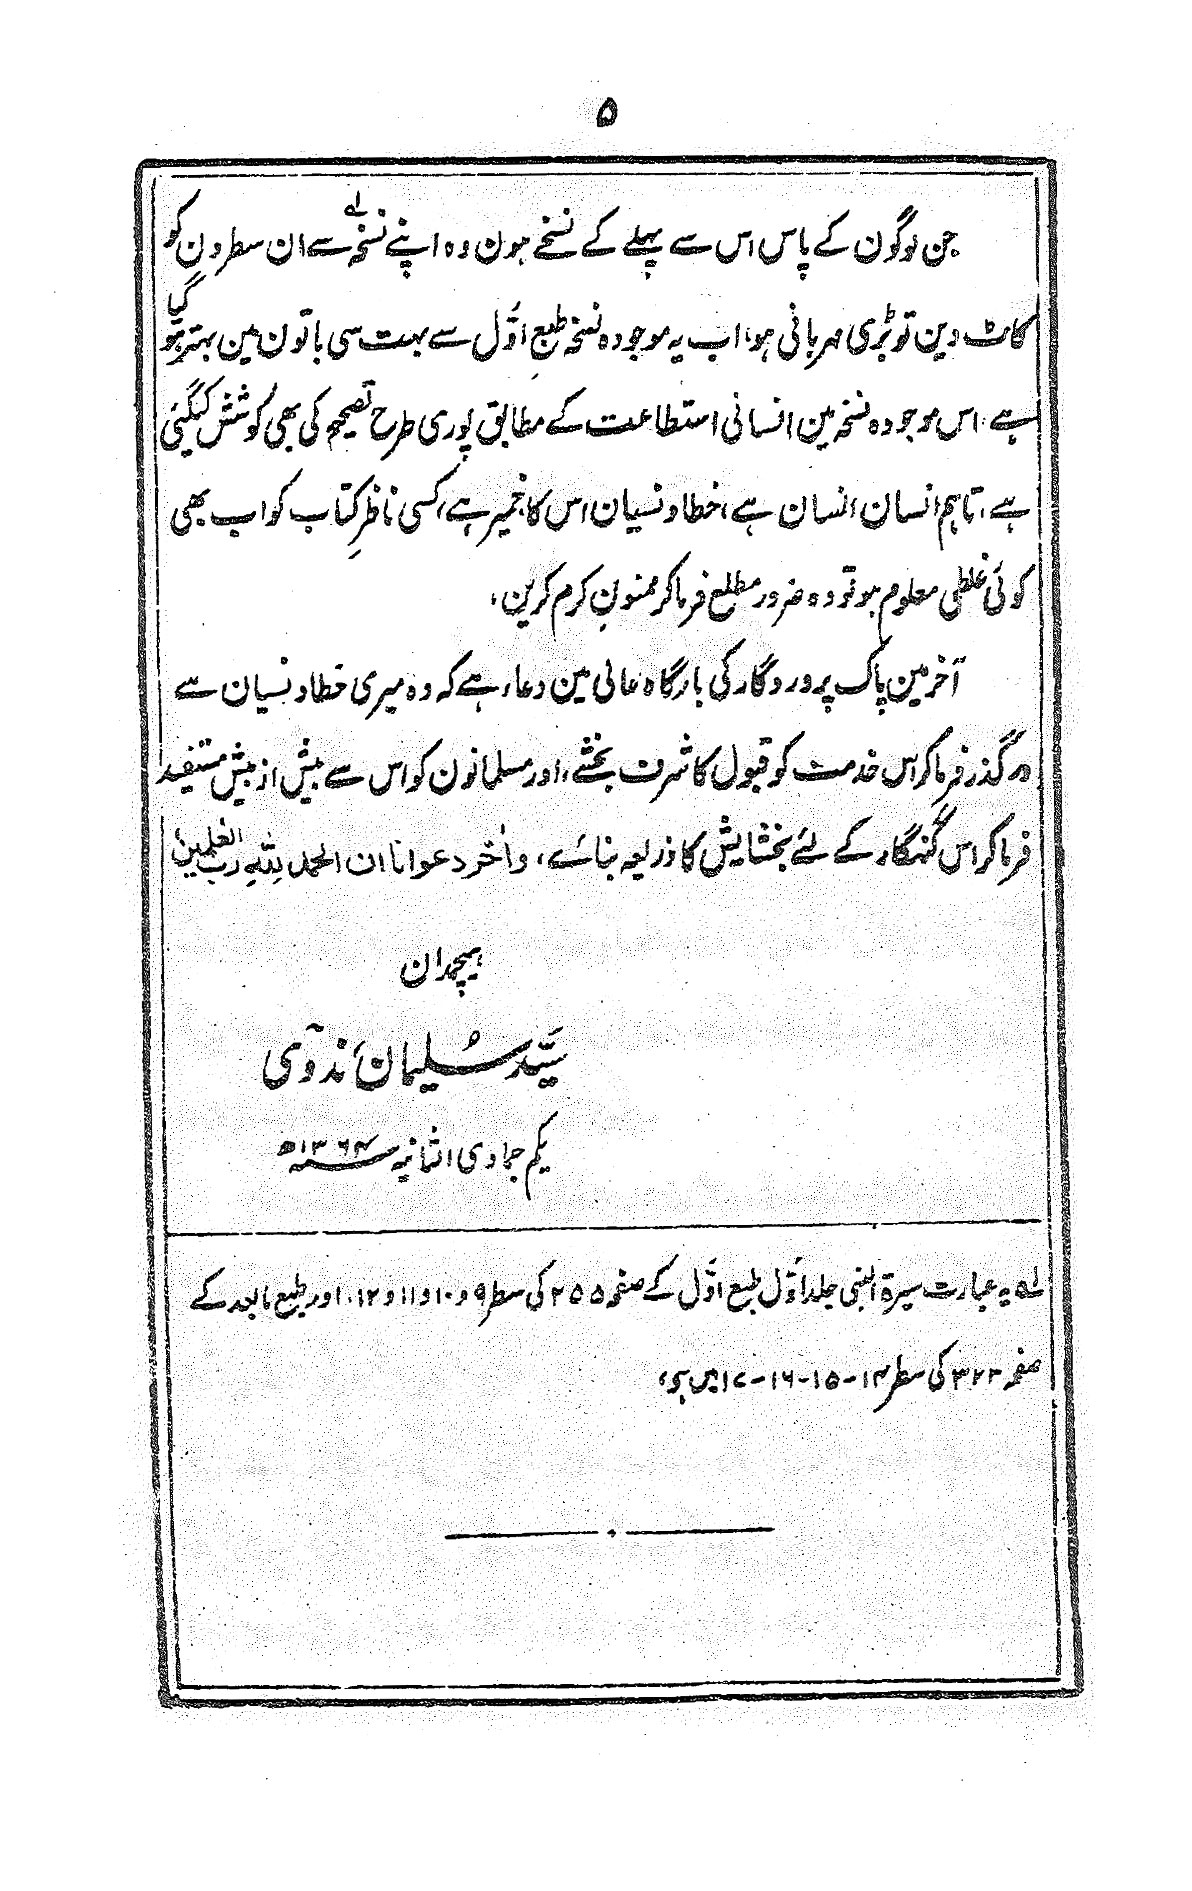 ۵
جن لوگون کے پاس اس سے پہلے کے نسخے ہون وہ اپنے نسخہ لے سے ان سطرون کو
کاٹ دین تو بڑی مہربانی ہو، اب یہ موجودہ نسخہ طبعِ اوّل سے بہت سی باتون مین بہتر ہو گیا
ہے، اس موجودہ نسخہ مین انسانی استطاعت کے مطابق پوری طرح تصحیح کی بھی کوشش کیگئی
ہے، تاہم انسان انسان ہے، خطا و نسیان اس کا خمیر ہے، کسی ناظرِ کتاب کو اب بھی
کوئی غلطی معلوم ہو تو وہ ضرور مطلع فرما کر ممنونِ کرم کرین،
آخر مین پاک پروردگار کی بارگاہ عالی مین دعاء ہے کہ وہ میری خطا و نسیان سے
در گذر فرما کر اس خدمت کو قبول کا شرف بخشے، اور مسلمانون کو اس سے بیش از بیش مستفید
فرما کر اس گنہگار کے لئے بخشایش کا ذریعہ بنائے، واٰخر دعوانا ان الحمد للّٰہِ رب العٰلمین
ہیچمدان
سیّد سُلیمان ندوی
یکم جمادی الثانیہ سنہ ۱۳۶۴ھ
لے یہ عبارت سیرۃ النبی جلد اوّل طبع اوّل کے صفحہ ۲۵۵ کی سطر ۹ و ۱۰ و ۱۱ و ۱۲، اور طبع مابعد کے
صفحہ ۳۲۳ کی سطر ۱۴-۱۵-۱۶-۱۷ میں ہے،